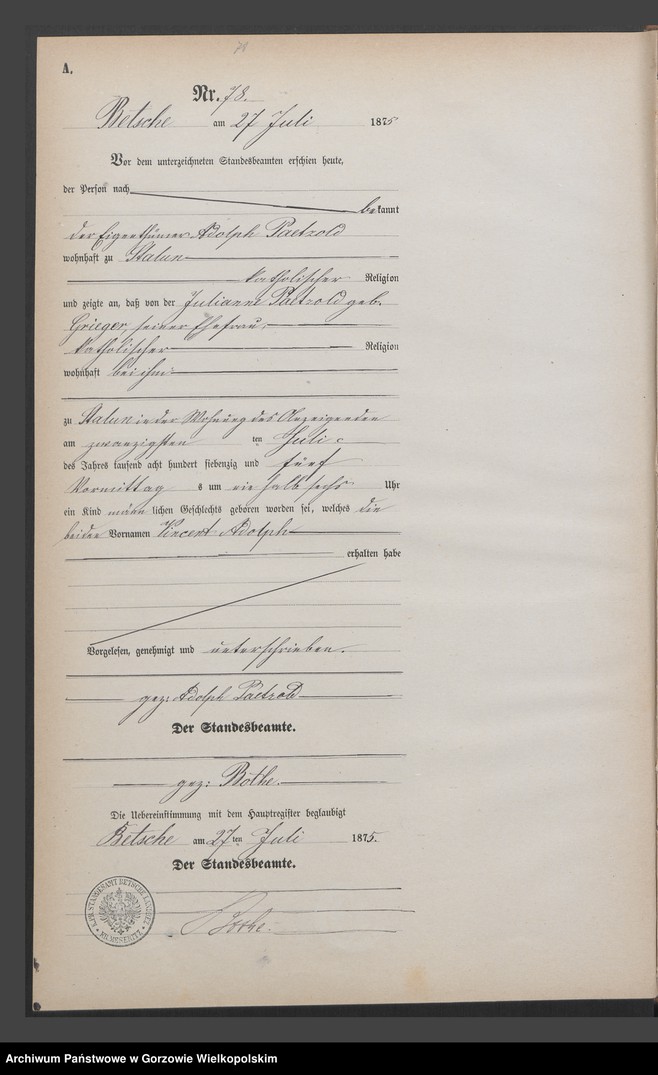 A.
Nr. 78.
Betsche am 27 Juli 1875
Vor dem unterzeichneten Standesbeamten erschien heute,
der Person nach
bekannt
der Eigenthümer Adolph Paetzold
wohnhaft zu Stalun
katholischer Religion
und zeigte an, daß von der Julianne Paetzold geb.
Grieger, seiner Ehefrau,
katholischer Religion
wohnhaft bei ihm
zu Stalun in der Wohnung des Anzeigenden
am zwanzigsten ten Juli
des Jahres tausend acht hundert siebenzig und fünf
Vormittag s um halb sechs Uhr
ein Kind männ lichen Geschlechts geboren worden sei, welches die
beiden Vornamen Vincent Adolph
erhalten habe
Vorgelesen, genehmigt und unterschrieben.
gez: Adolph Paetzold
Der Standesbeamte.
gez: Bothe.
Die Uebereinstimmung mit dem Hauptregister beglaubigt
Betsche am 27 ten Juli 1875.
Der Standesbeamte.
Bothe.
KPR. STANDESAMT BETSCHE LANDBEZ. KR. MESERITZ
Archiwum Państwowe w Gorzowie Wielkopolskim